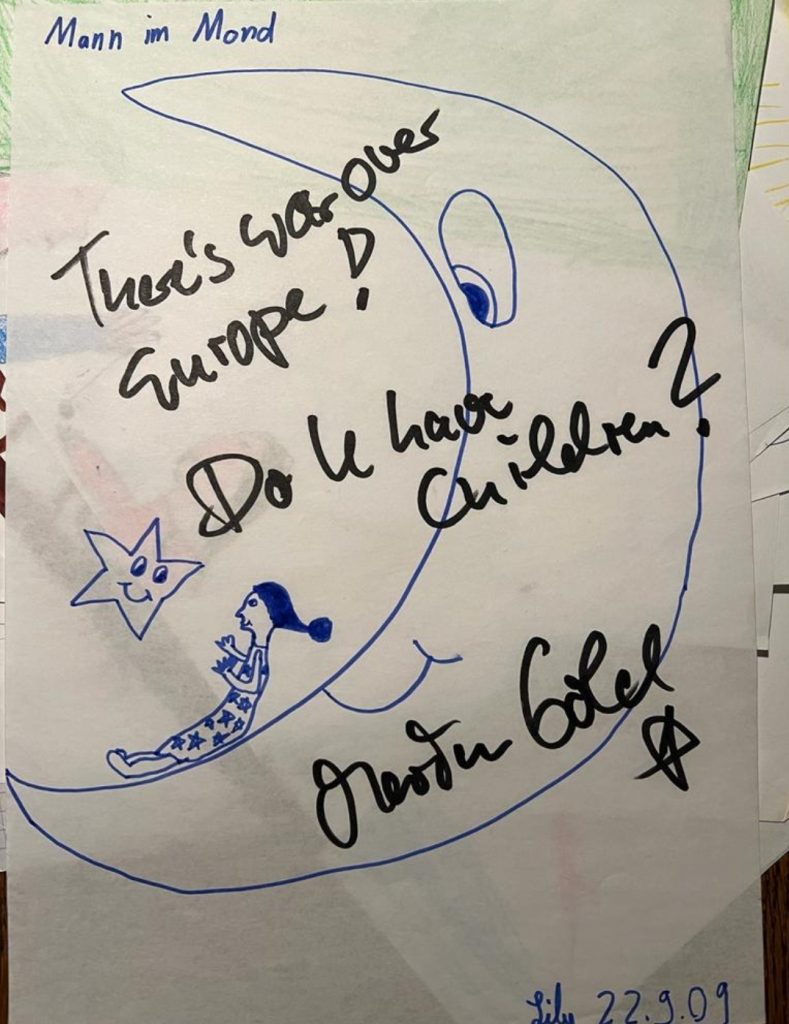 Mann im Mond
There's war over
Europe!
Do U have
Children?
Gölel
Lily 22.9.09